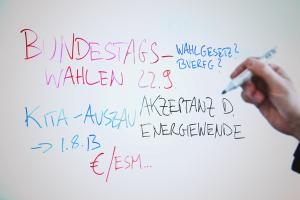 BUNDESTAGS-
WAHLEN 22.9
WAHLGESETZ?
BVERFG?
KITA-AUSBAU
→ 1.8.13
AKZEPTANZ D.
ENERGIEWENDE
€/ESM...